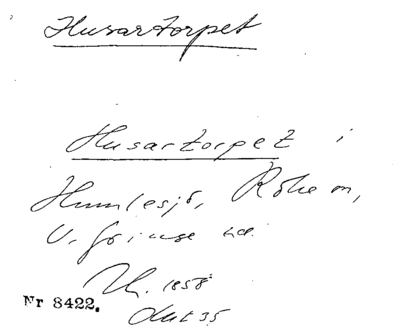 Husartorpet
Husartorpet i
Humlesjö, Röke sn,
V. Göinge hd.
1858
Nr 8422.